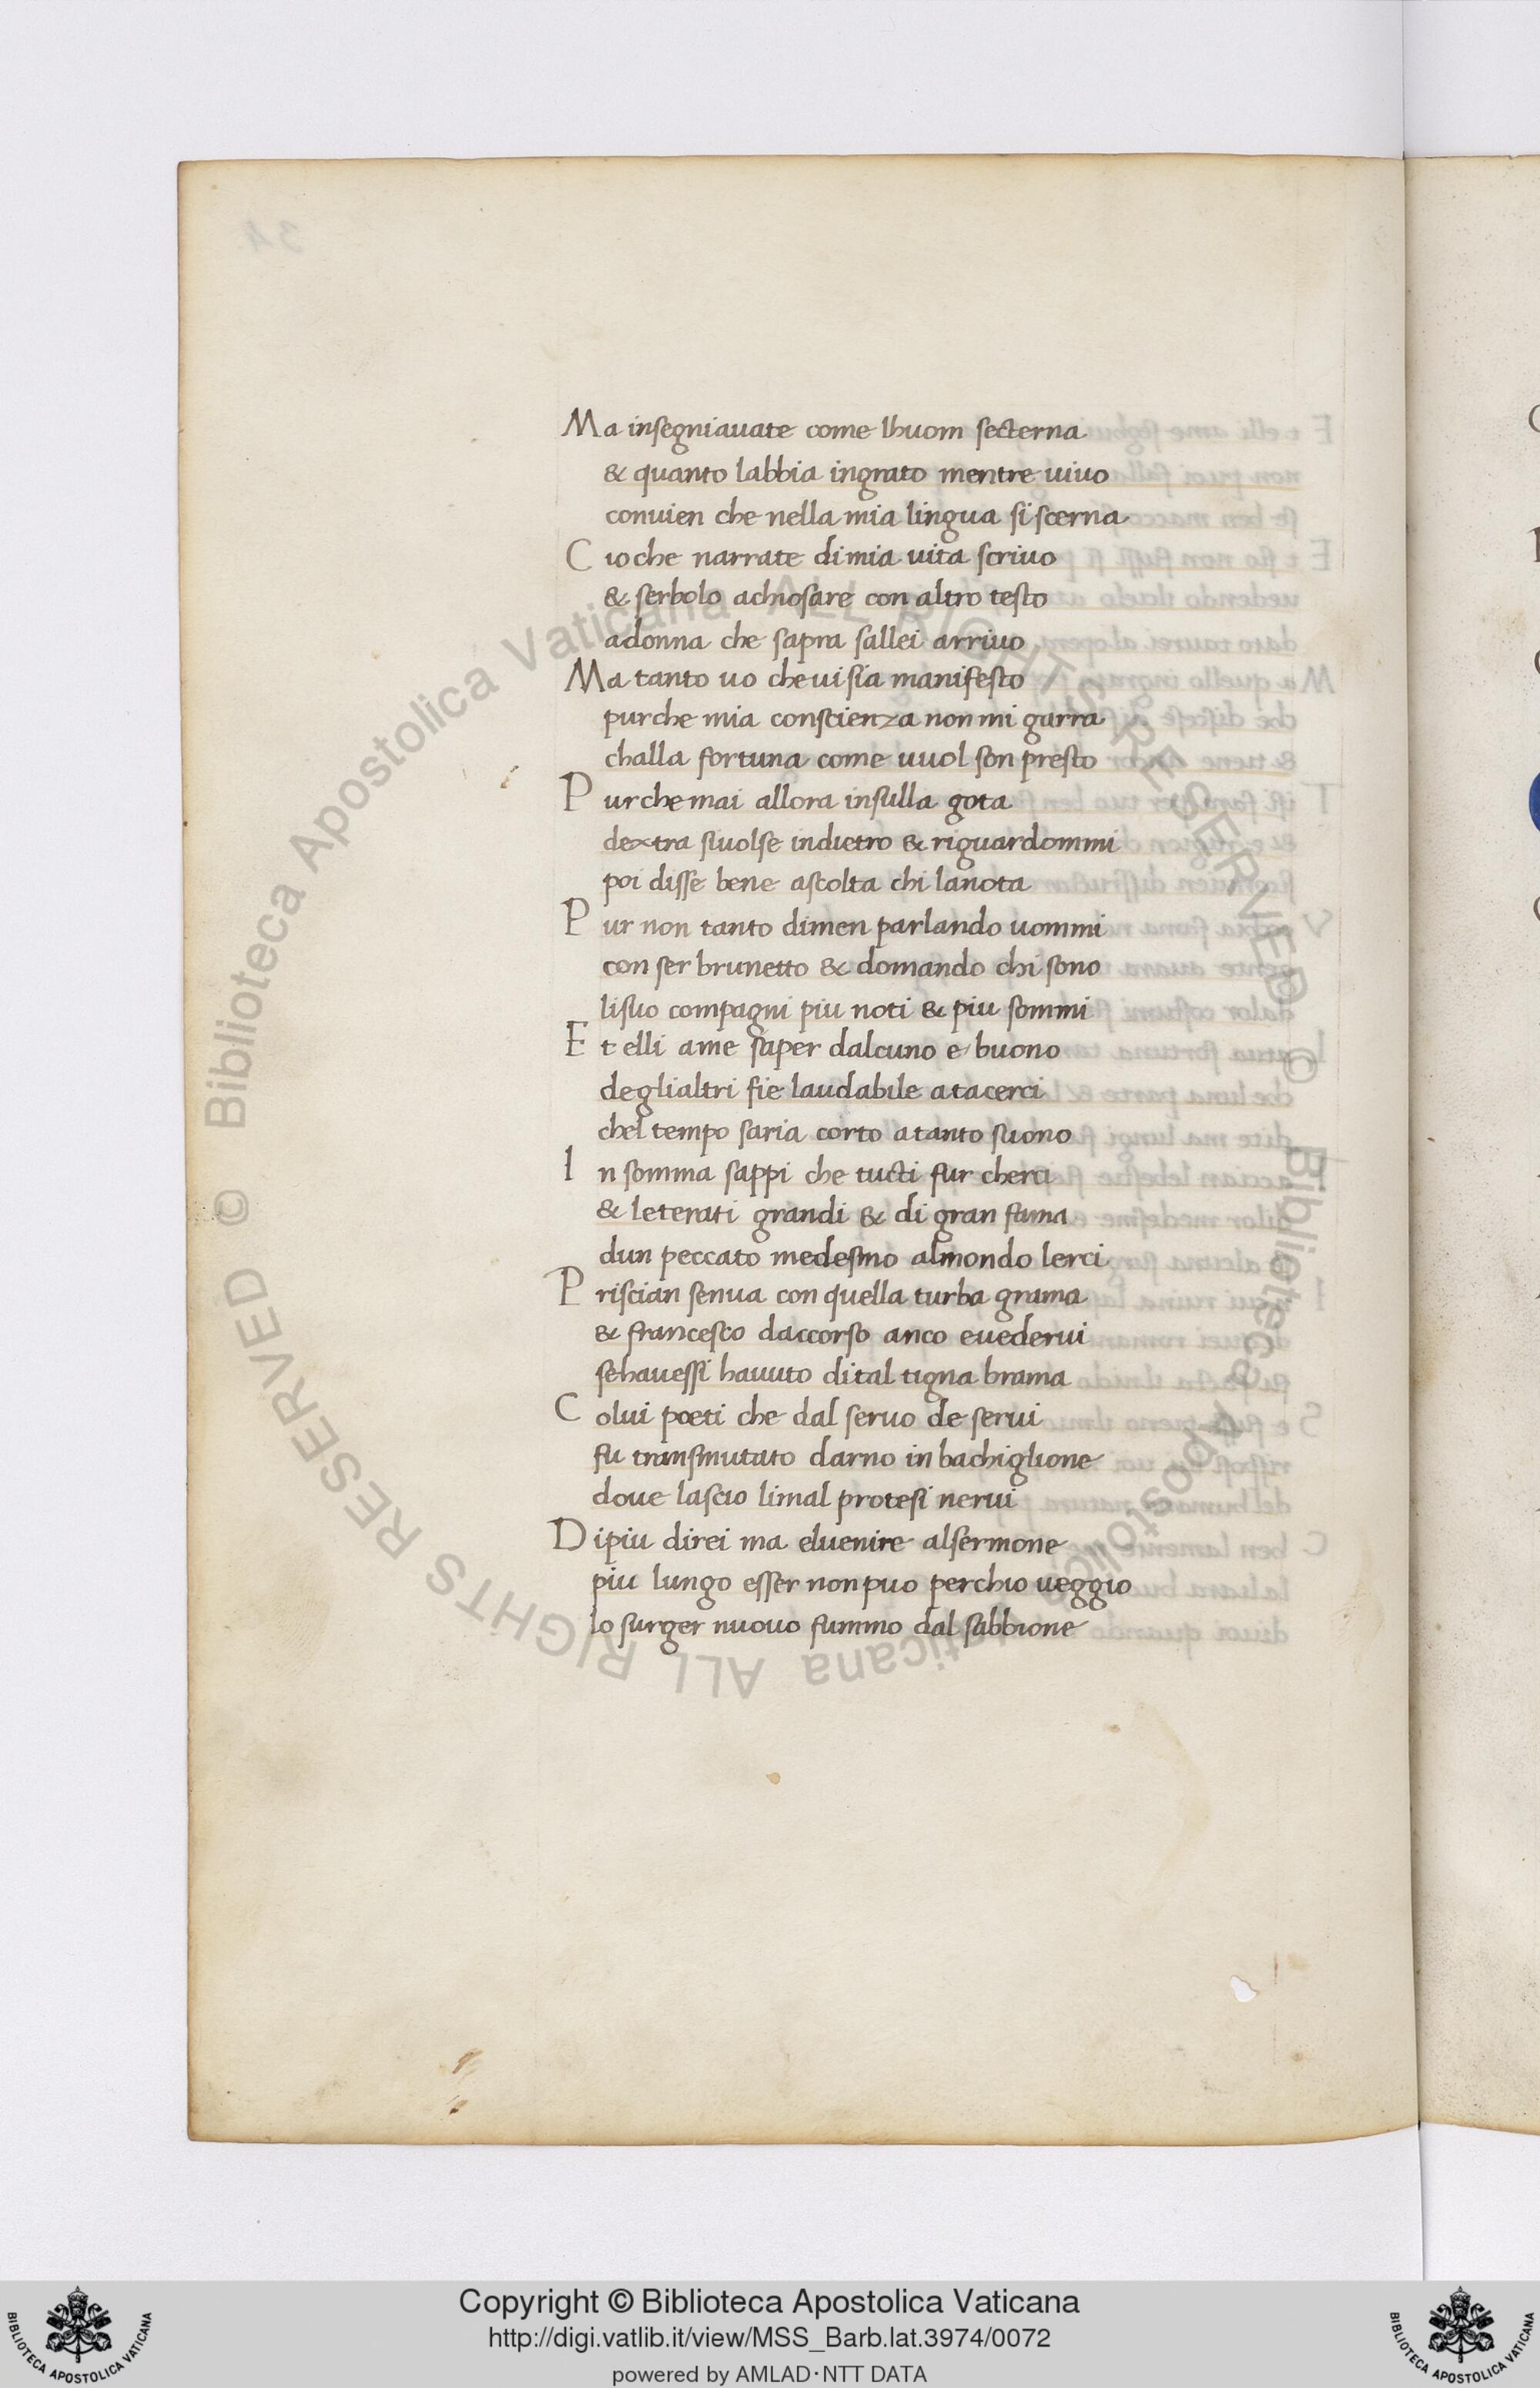 Ma insegniauate come lhuom secterna
& quanto labbia ingrato mentre uiuo
conuien che nella mia lingua si scerna
Cio che narrate di mia uita scriuo
& serbolo achiosare con altro testo
adonna che sapra sallei arriuo
Ma tanto uo che ui sia manifesto
pur che mia conscienza non mi garra
challa fortuna come uuol son presto
Pur che mai allora in sulla gota
dextra siuolse indietro & riguardommi
poi disse bene ascolta chi lanota
Pur non tanto dimen parlando uommi
con ser brunetto & domando chi sono
lisuo compagni piu noti & piu sommi
Et elli ame saper dalcuno e buono
deglialtri fie laudabile atacerci
chel tempo saria corto atanto suono
In somma sappi che tucti fur cherci
& leterati grandi & di gran fama
dun peccato medesmo almondo lerci
Priscian senua con quella turba grama
& francesco daccorso anco euederui
sehauessi hauuto di tal tigna brama
Colui poeti che dal seruo de serui
fu transmutato darno in bachiglione
doue lascio limal protesi nerui
Di piu direi ma eluenire alsermone
piu lungo esser non puo perchio ueggio
lo surger nuouo fummo dal sabbione
© Biblioteca Apostolica Vaticana ALL RIGHTS RESERVED
© Biblioteca Apostolica Vaticana ALL RIGHTS RESERVED
Copyright © Biblioteca Apostolica Vaticana
http://digi.vatlib.it/view/MSS_Barb.lat.3974/0072
powered by AMLAD·NTT DATA
BIBLIOTECA APOSTOLICA VATICANA
BIBLIOTECA APOSTOLICA VATICANA